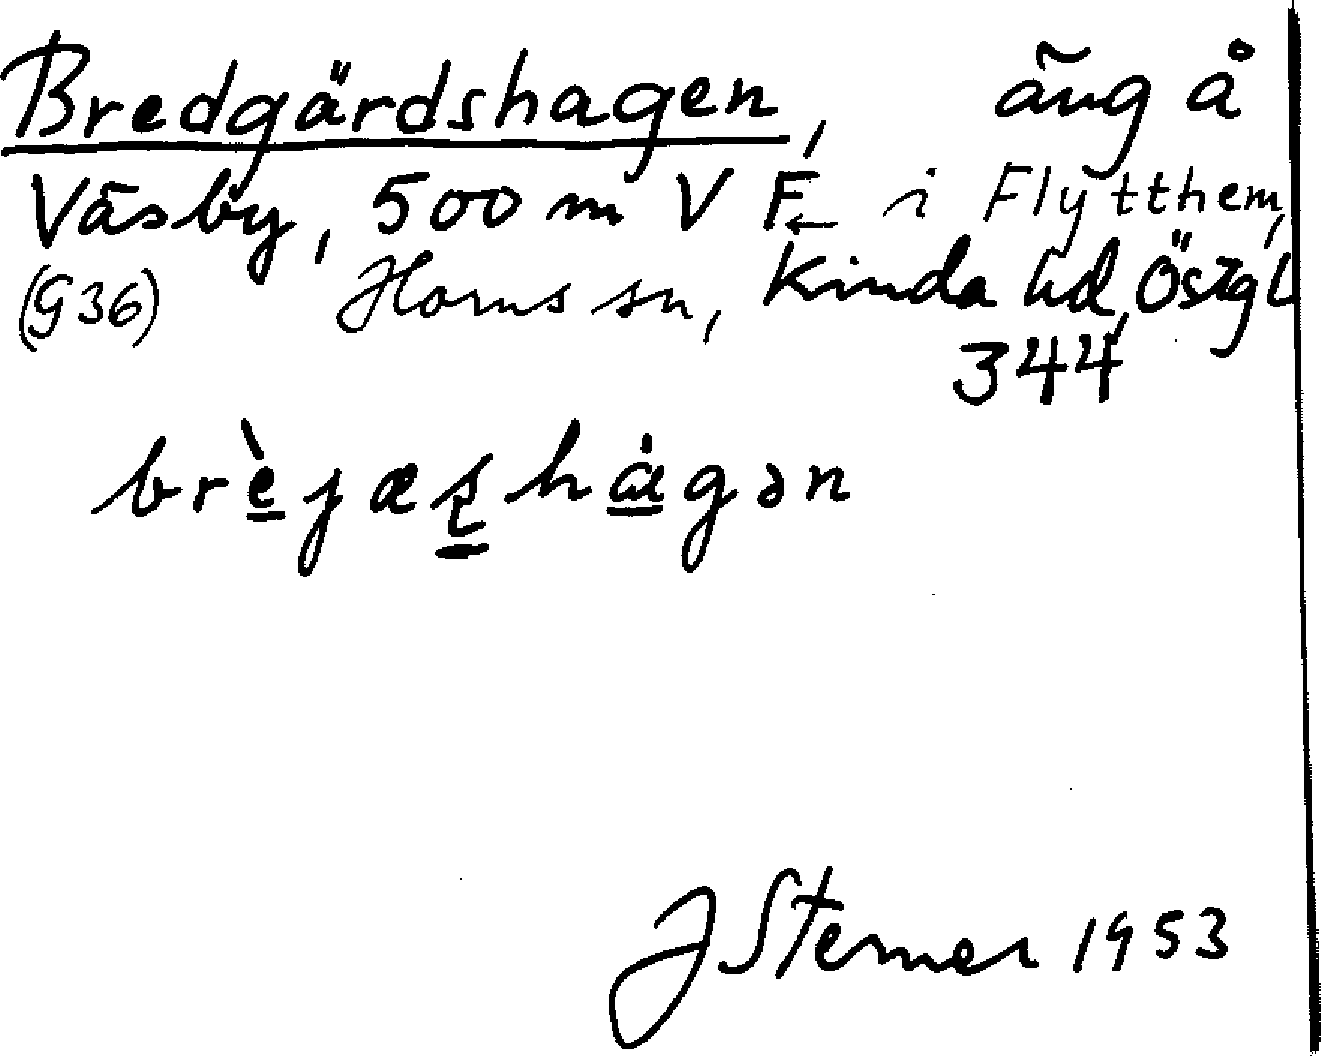 Bredgärdshagen, äng å
Väsby, 500 m V F← i Flytthem,
(G36) Horns sn, Kinda hd, Östgl
344
brèjæʂhȧgən
J Sterner 1953